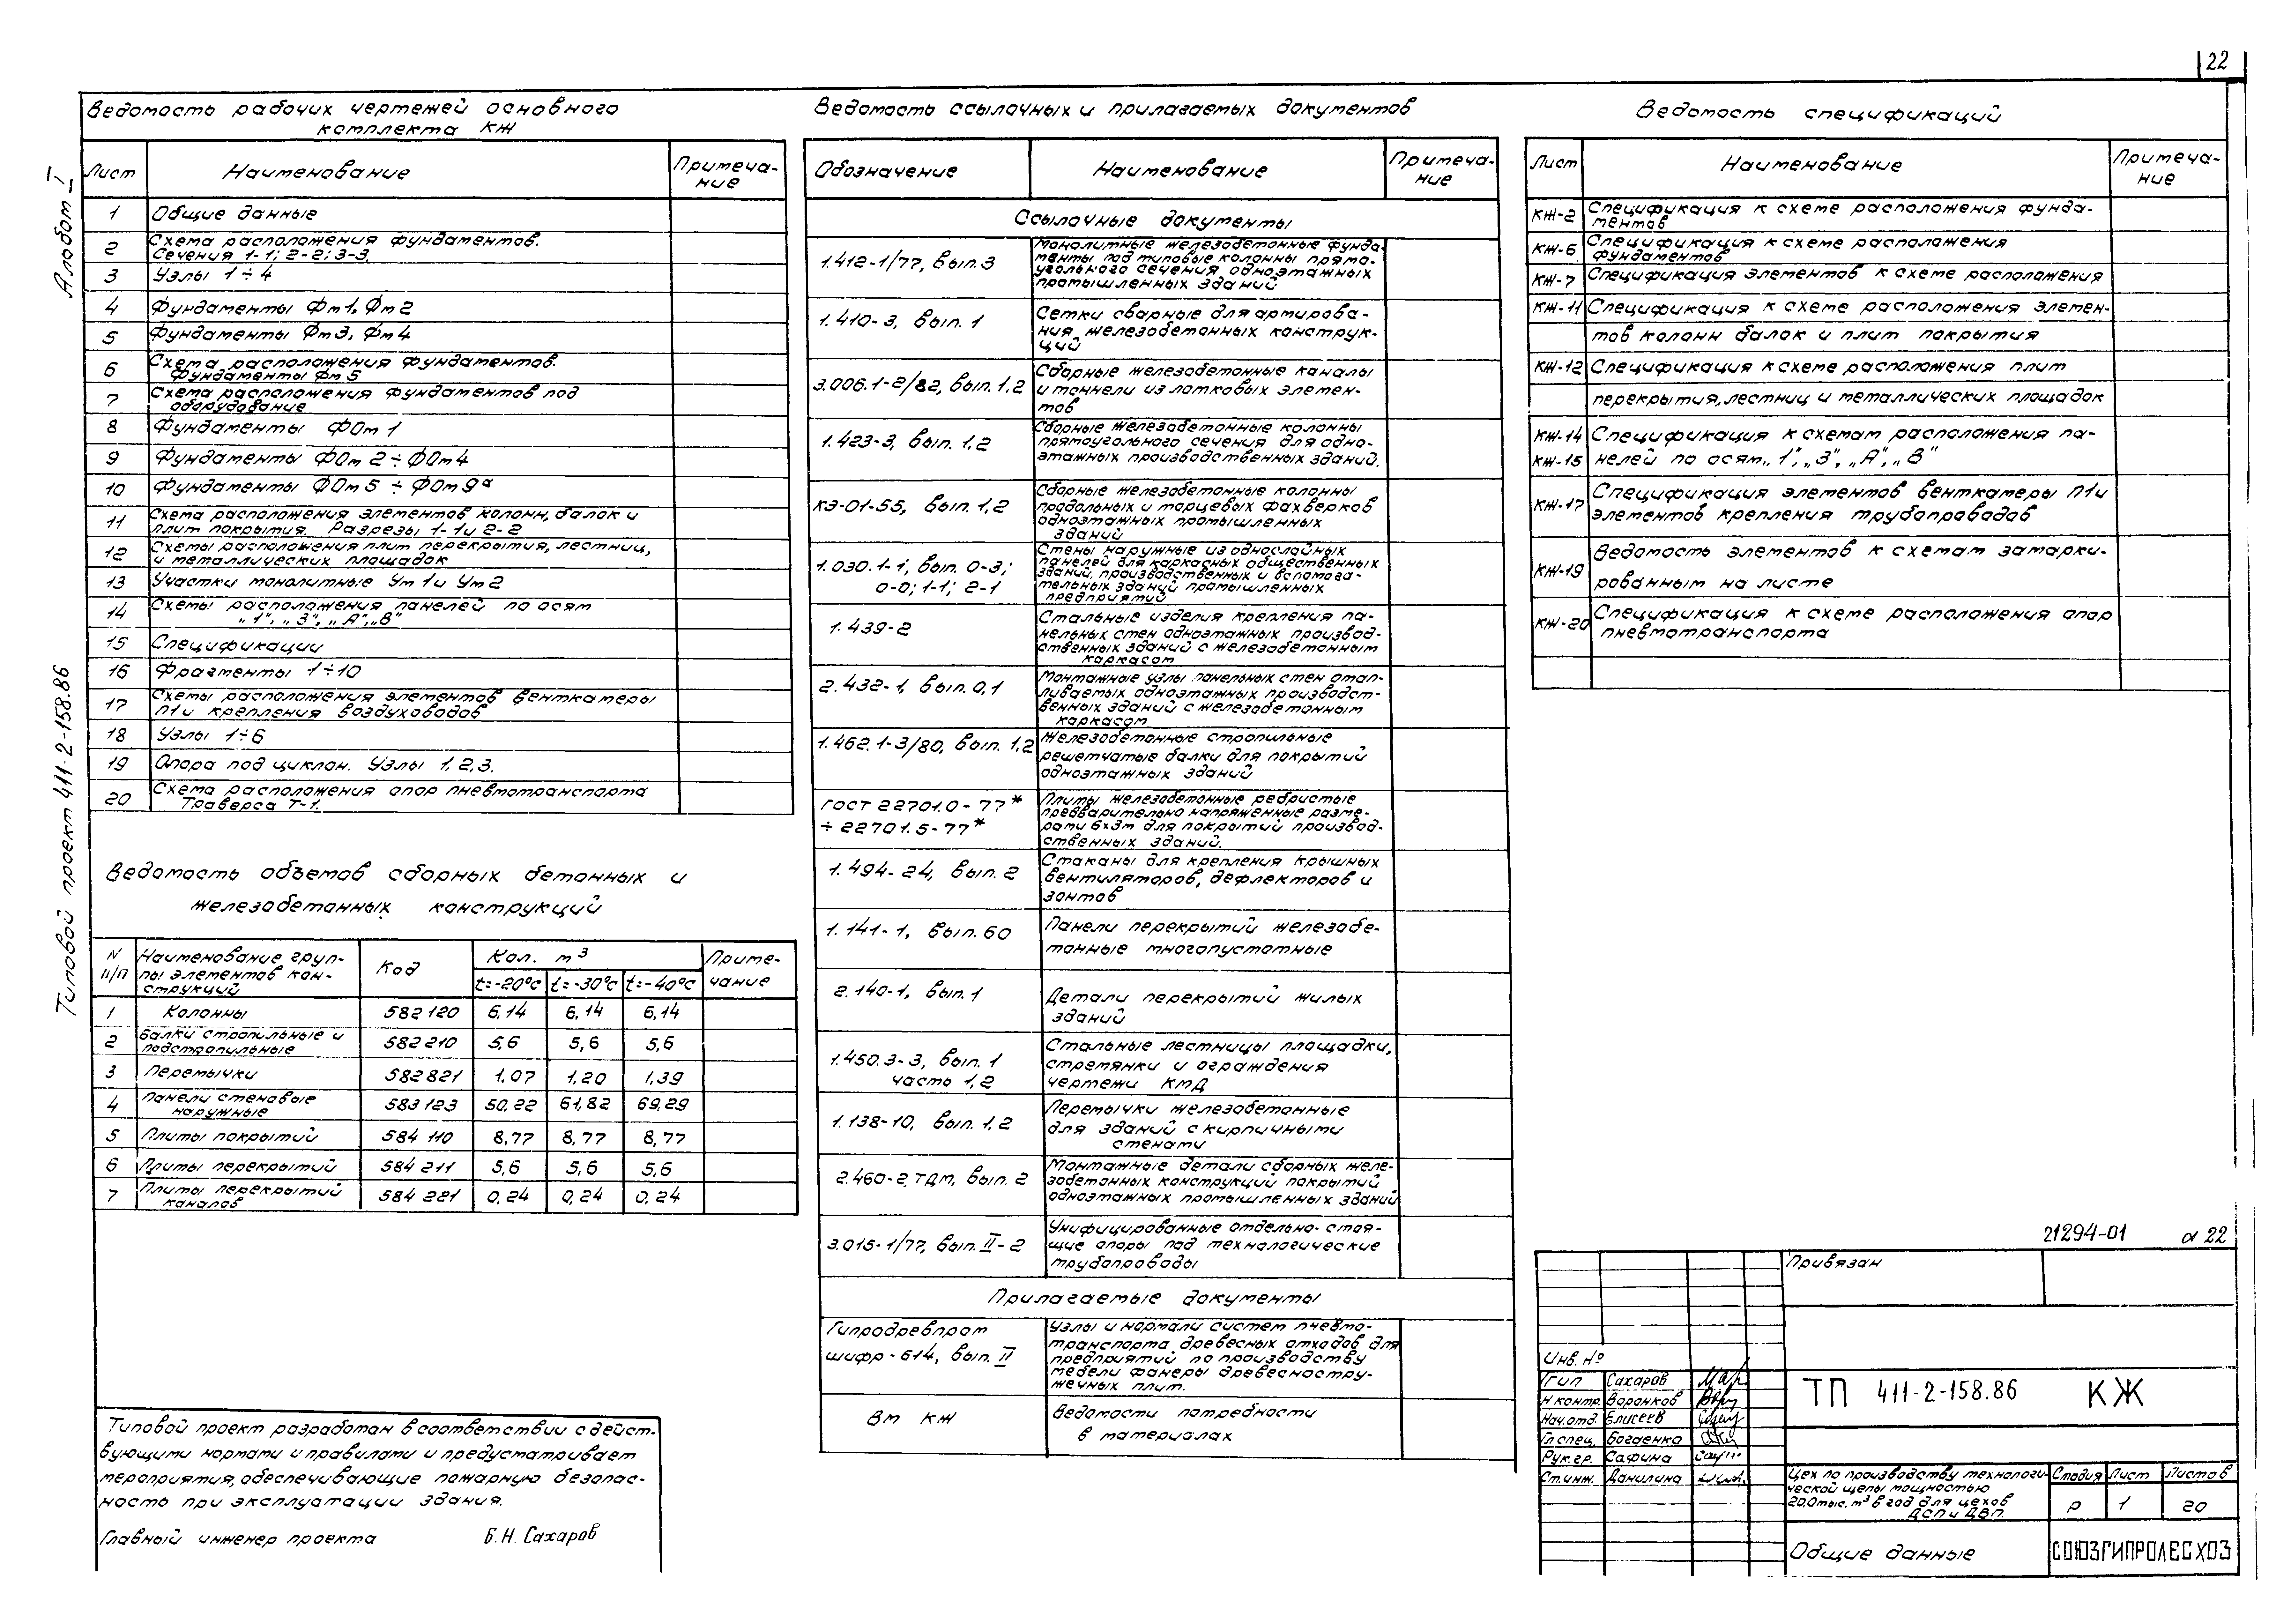 22
Альбом I
Типовой проект 411-2-158.86
Ведомость рабочих чертежей основного
комплекта КЖ
Лист Наименование Примеча-
ние
1 Общие данные
2 Схема расположения фундаментов.
Сечения 1-1; 2-2; 3-3.
3 Узлы 1÷4
4 Фундаменты Фм1, Фм2
5 Фундаменты Фм3, Фм4
6 Схема расположения фундаментов.
Фундаменты Фм5
7 Схема расположения фундаментов под
оборудование
8 Фундаменты ФОм1
9 Фундаменты ФОм2÷ФОм4
10 Фундаменты ФОм5 ÷ ФОм9а
11 Схема расположения элементов колонн, балок и
плит покрытия. Разрезы 1-1 и 2-2
12 Схемы расположения плит перекрытия, лестниц,
и металлических площадок
13 Участки монолитные Ум1 и Ум2
14 Схемы расположения панелей по осям
„1", „3", „А", „В"
15 Спецификации
16 Фрагменты 1÷10
17 Схемы расположения элементов венткамеры
П1 и крепления воздуховодов
18 Узлы 1÷6
19 Опора под циклон. Узлы 1, 2, 3.
20 Схема расположения опор пневмотранспорта
Траверса Т-1.
Ведомость объемов сборных бетонных и
железобетонных конструкций
N
п/п
Наименование груп-
пы элементов кон-
струкций
Код
Кол. м³
Приме-
чание
t=-20°С t=-30°С t=-40°С
1 Колонны 582120 6,14 6,14 6,14
2 Балки стропильные и
подстропильные 582210 5,6 5,6 5,6
3 Перемычки 582821 1,07 1,20 1,39
4 Панели стеновые
наружные 583123 50,22 61,82 69,29
5 Плиты покрытий 584110 8,77 8,77 8,77
6 Плиты перекрытий 584211 5,6 5,6 5,6
7 Плиты перекрытий
каналов 584221 0,24 0,24 0,24
Типовой проект разработан в соответствии с дейст-
вующими нормами и правилами и предусматривает
мероприятия, обеспечивающие пожарную безопас-
ность при эксплуатации здания.
Главный инженер проекта Б.Н. Сахаров
Ведомость ссылочных и прилагаемых документов
Обозначение Наименование Примеча-
ние
Ссылочные документы
1.412-1/77, вып.3 Монолитные железобетонные фунда-
менты под типовые колонны прямо-
угольного сечения одноэтажных
промышленных зданий
1.410-3, вып. 1 Сетки сварные для армирова-
ния железобетонных конструк-
ций
3.006.1-2/82, вып. 1,2 Сборные железобетонные каналы
и тоннели из лотковых элемен-
тов
1.423-3, вып. 1,2 Сборные железобетонные колонны
прямоугольного сечения для одно-
этажных производственных зданий.
КЭ-01-55, вып. 1,2 Сборные железобетонные колонны
продольных и торцевых фахверков
одноэтажных промышленных
зданий
1.030.1-1, вып. 0-3;
0-0; 1-1; 2-1
Стены наружные из однослойных
панелей для каркасных общественных
зданий, производственных и вспомога-
тельных зданий промышленных
предприятий
1.439-2 Стальные изделия крепления па-
нельных стен одноэтажных производ-
ственных зданий с железобетонным
каркасом
2.432-1, вып. 0,1 Монтажные узлы панельных стен отап-
ливаемых одноэтажных производст-
венных зданий с железобетонным
каркасом
1.462.1-3/80, вып. 1,2 Железобетонные стропильные
решетчатые балки для покрытий
одноэтажных зданий
ГОСТ 22701.0-77*
÷ 22701.5-77*
Плиты железобетонные ребристые
предварительно напряженные разме-
рами 6х3м для покрытий производ-
ственных зданий.
1.494-24, вып. 2 Стаканы для крепления крышных
вентиляторов, дефлекторов и
зонтов
1.141-1, вып. 60 Панели перекрытий железобе-
тонные многопустотные
2.140-1, вып. 1 Детали перекрытий жилых
зданий
1.450.3-3, вып. 1
часть 1,2
Стальные лестницы площадки,
стремянки и ограждения
чертежи КМД
1.138-10, вып. 1,2 Перемычки железобетонные
для зданий с кирпичными
стенами
2.460-2, ТДМ, вып. 2 Монтажные детали сборных желе-
зобетонных конструкций покрытий
одноэтажных промышленных зданий
3.015-1/77, вып. II-2 Унифицированные отдельно-стоя-
щие опоры под технологические
трубопроводы
Прилагаемые документы
Гипродревпром
шифр-614, вып. II
Узлы и нормали систем пневмо-
транспорта древесных отходов для
предприятий по производству
мебели фанеры древесностру-
жечных плит.
Вм КЖ Ведомости потребности
в материалах
Ведомость спецификаций
Лист Наименование Примеча-
ние
КЖ-2 Спецификация к схеме расположения фунда-
ментов
КЖ-6 Спецификация к схеме расположения
фундаментов
КЖ-7 Спецификация элементов к схеме расположения
КЖ-11 Спецификация к схеме расположения элемен-
тов колонн балок и плит покрытия
КЖ-12 Спецификация к схеме расположения плит
перекрытия, лестниц и металлических площадок
КЖ-14 Спецификация к схемам расположения па-
КЖ-15 нелей по осям „1", „3", „А", „В"
КЖ-17 Спецификация элементов венткамеры П1 и
элементов крепления трубопроводов
КЖ-19 Ведомость элементов к схемам замарки-
рованным на листе
КЖ-20 Спецификация к схеме расположения опор
пневмотранспорта
21294-01 22
Привязан
Инв. №
ГИП Сахаров
Н контр. Воронков
Нач.отд Елисеев
Гл спец. Богаенко
Рук.гр. Сафина
Ст.инж. Данилина
ТП 411-2-158.86 КЖ
Цех по производству технологи-
ческой щепы мощностью
20,0 тыс. м³ в год для цехов
ДСП и ДВП.
Стадия Лист Листов
Р 1 20
Общие данные
СОЮЗГИПРОЛЕСХОЗ